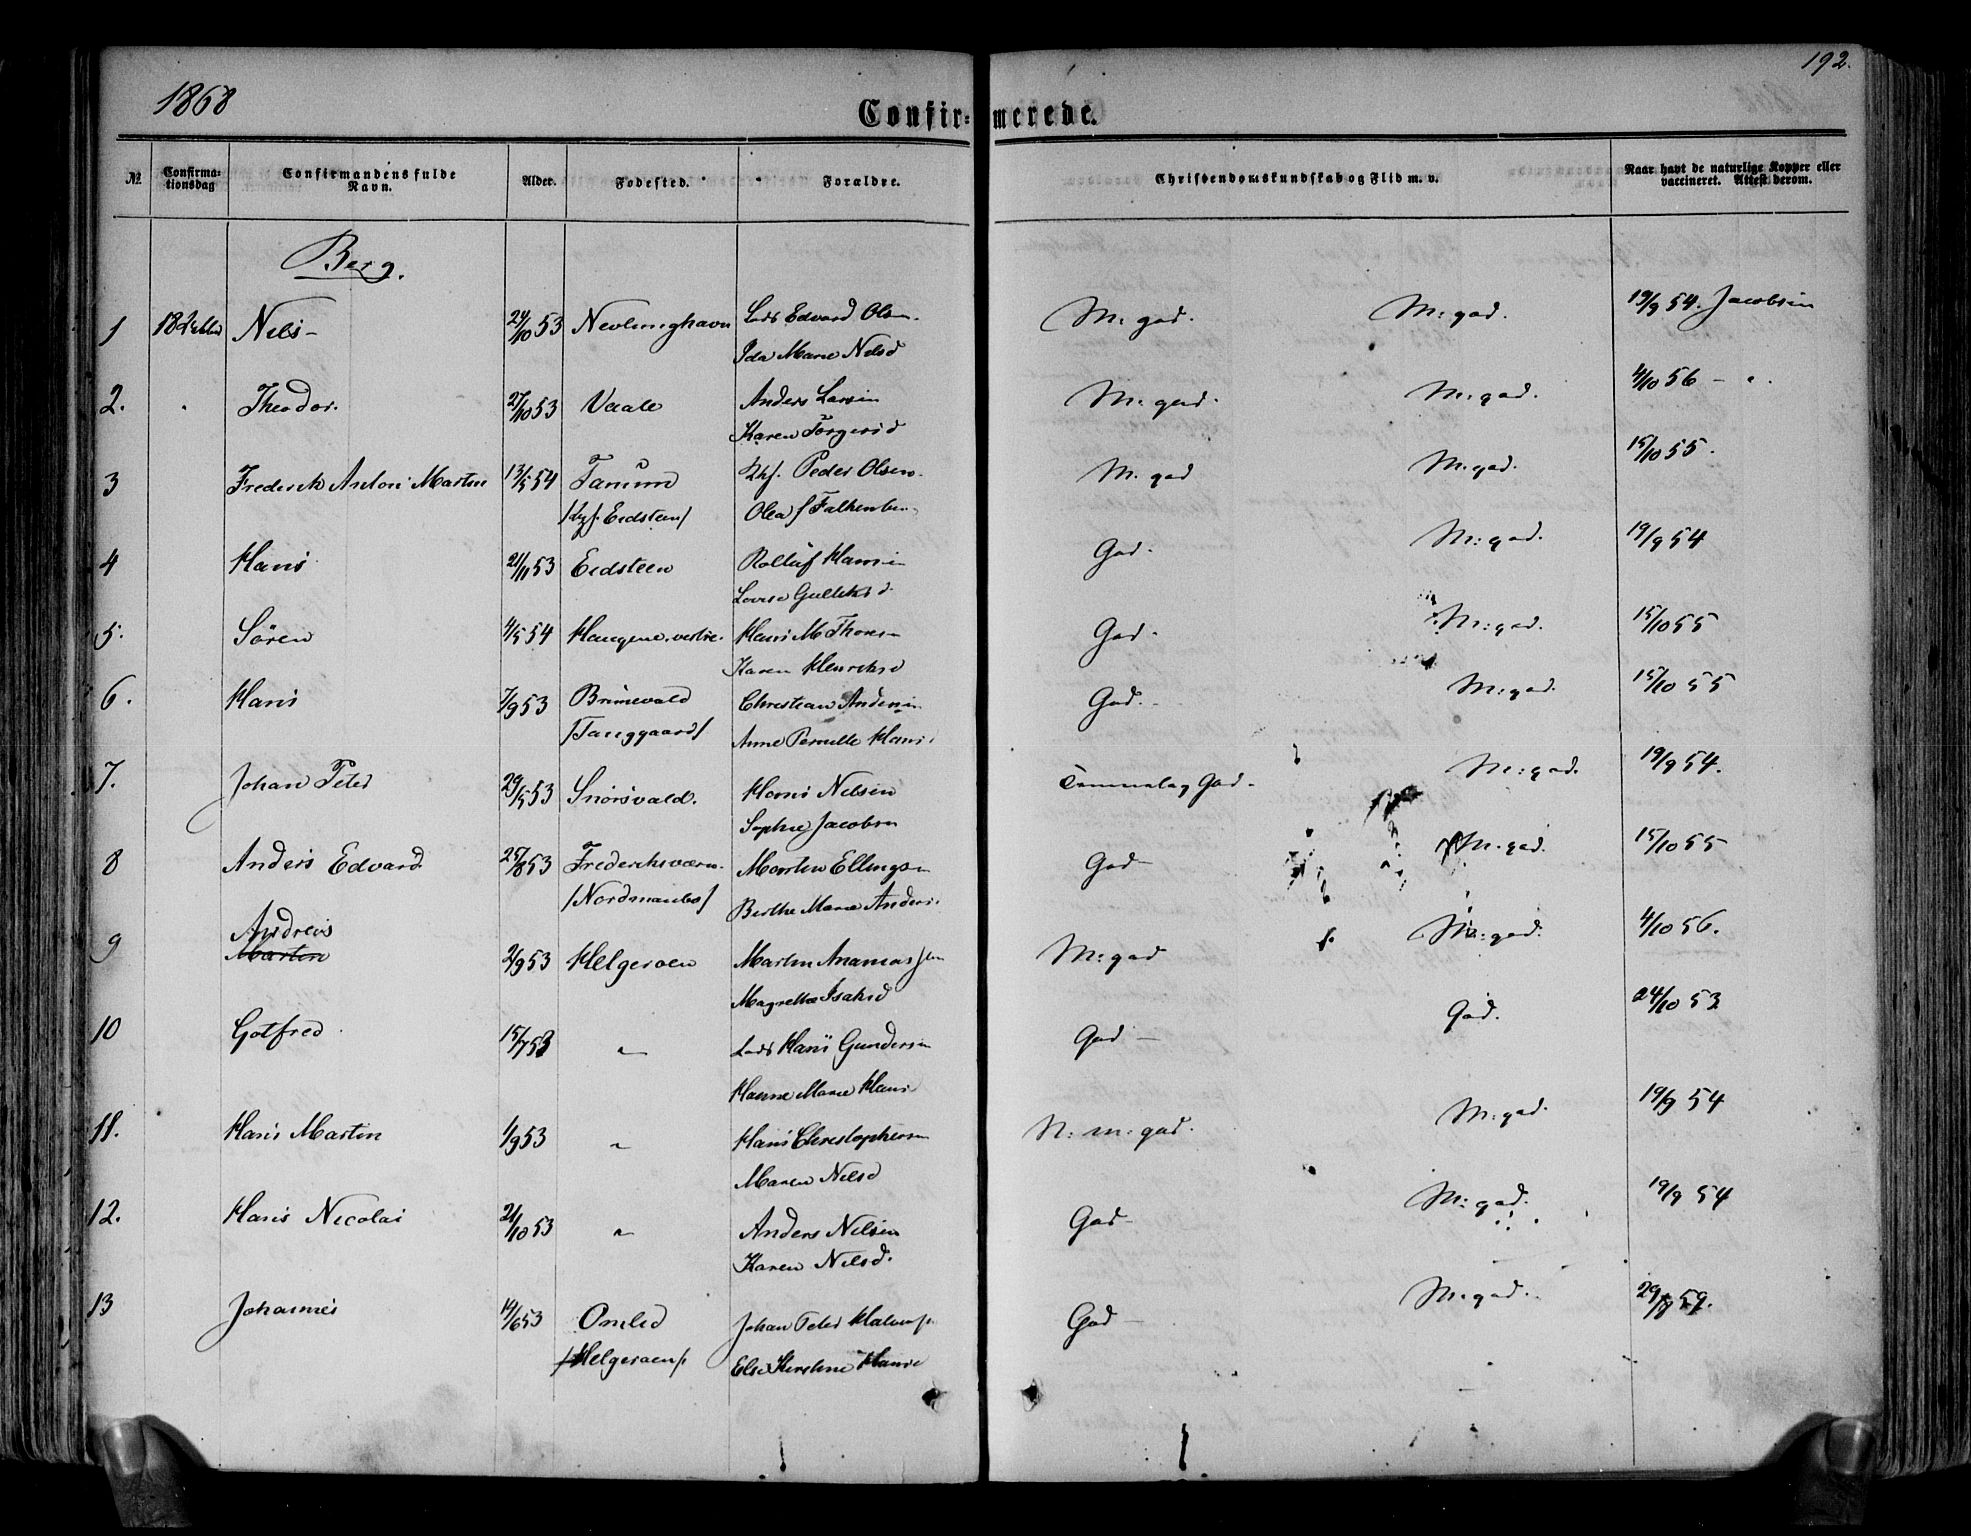 1868
192.
Confir= merede.
№
Confirma-
tionsdag
Confirmandens fulde
Navn.
Alder.
Fødested.
Forældre.
Christendomskundskab og Flid m. v.
Naar havt de naturlige Kopper eller
vaccineret. Attest derom.
Berg.
1 Nils- 24/10 53 Nevlunghavn Lods Edvard Olsen M: god. M: god. 19/9 54. Jacobsen
Ida Marie Nelsd
2. Theodor. 27/10 53 Vaale Anders Larsen M: god. M: god. 4/10 56 - "
Karen Torgersd
3 Frederik Anton Martin 13/5 54 Tanum Peder Olsen M. god M. god. 15/10 55.
Eidsteen/ Olea Falkenberg
4 Hans 21/11 53 Eidsteen Rolluf Hansen God. M: god. 19/9 54
Lovise Gulliksd
5. Søren 4/5 54 Haugene vestre. Hans M Thoresen God. M: god. 15/10 55
Karen Henriksd
6. Hans 7/9 53 Brunevald Christian Andersen God. M: god. 15/10 55
/Tanggaard/ Anne Pernille Hansd
7. Johan Peter 29/5 53 Snørsvald. Hans Nilsen Temmelig God. M: god. 19/9 54.
Sophie Jacobsen
8 Anders Edvard 25/8 53 Frederiksværn. Morten Ellingsen God M. god. 15/10 55
/Nordmandes/ Berthe Marie Anders
9 Andreas
Martin 2/9 53 Helgeroen Martin Ananiassen M: god M: god. 4/10 56.
Magrethe Isaksd
10 Gotfred 15/7 53 " Lods Hans Gundersen God God. 24/10 53
Hanne Marie Hansd
11. Hans Martin 1/9 53 " Hans Christophersen N: m: god. M: god. 19/9 54
Maren Nilsd
12. Hans Nicolai 21/10 53 " Anders Nilsen God M: god. 19/9 54
Karen Nilsd.
13 Johannes 14/6 53 Omlid Johan Peter Halvorsen God M. god. 29/8 59.
/Helgeroen/ Else Kirstine Hansd